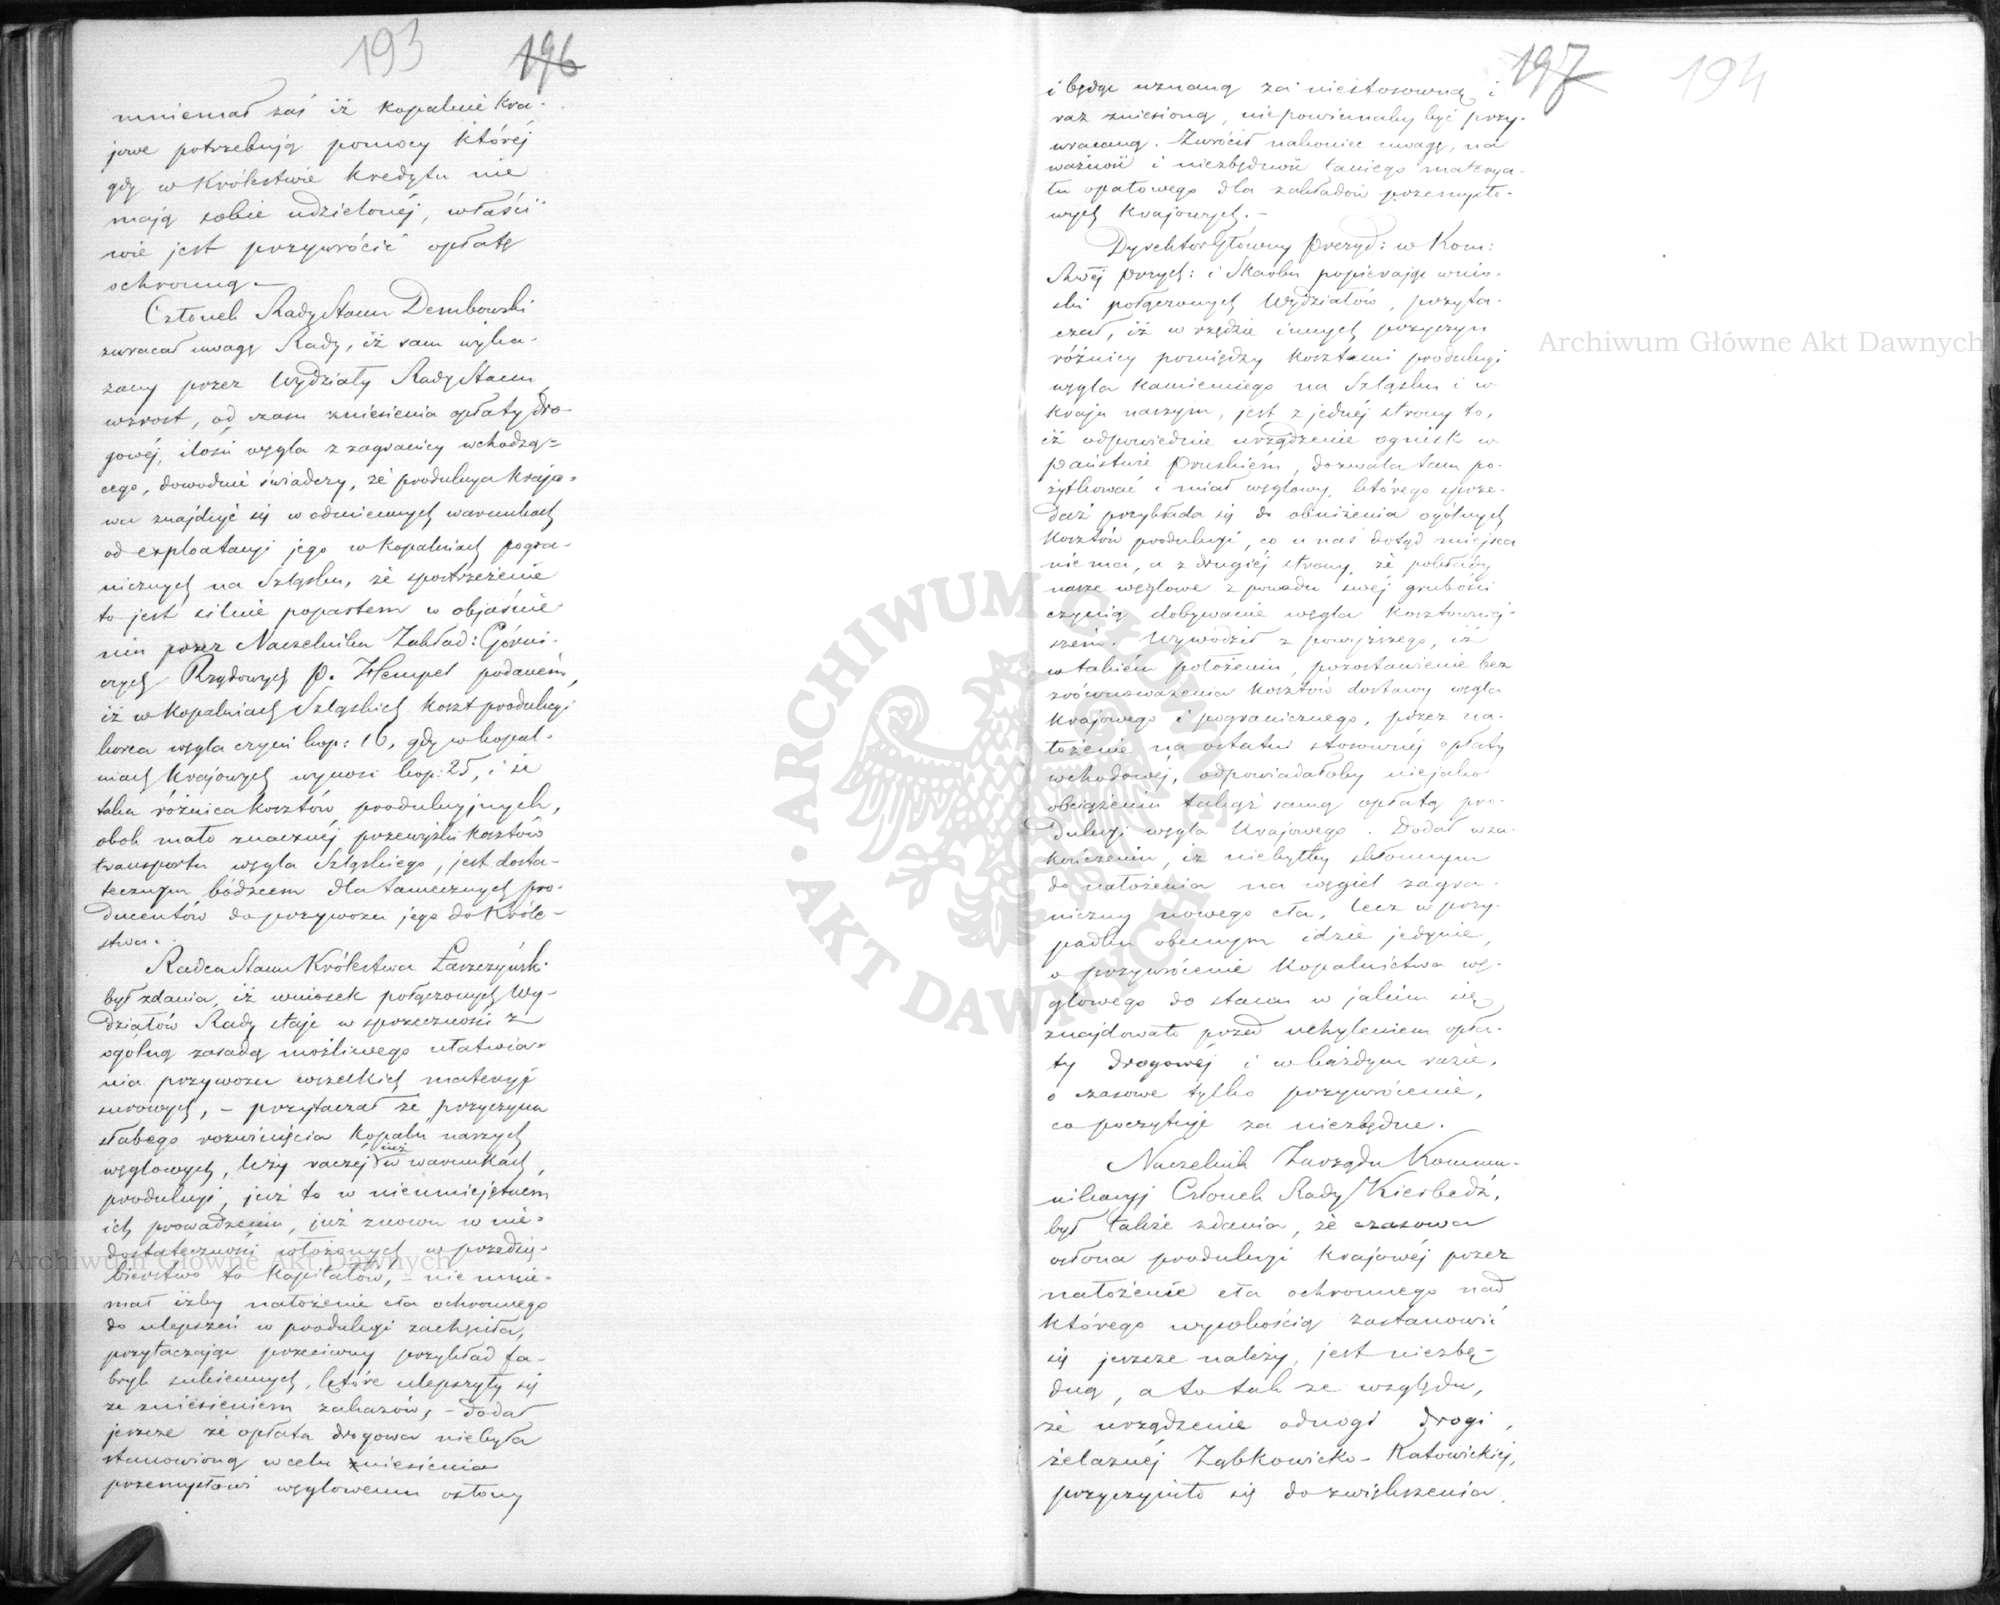 193 196
mniemał zaś iż kopalnie kra-
jowe potrzebują pomocy której
gdy w Królestwie kredytu nie
mają sobie udzielonéj, właści-
wie jest przywrócić opłatę
ochronną.—
Członek Rady Stanu Dembowski
zwracał uwagę Rady, iż sam wyka-
zany przez Wydziały Rady Stanu
wzrost, od czasu zniesienia opłaty dro-
gowéj, ilości węgla z zagranicy wchodzą=
cego, dowodnie świadczy, że produkcya krajo=
wa znajduje się w odmiennych warunkach
od exploatacyi jego w kopalniach pogra-
nicznych na Szląsku, że spostrzeżenie
to jest silnie popartem w objaśnie-
niu przez Naczelnika Zakład: Górni-
czych Rządowych P. Hempel podaném,
iż w kopalniach Szląskich koszt produkcyi
korca węgla czyni kop: 16, gdy w kopal-
niach krajowych wynosi kop: 25, i że
taka różnica kosztów produkcyjnych,
obok mało znacznéj przewyżki kosztów
transportu węgla Szląskiego, jest dosta-
tecznym bódźcem dla tamecznych pro-
ducentów do przywozu jego do Króle-
stwa.
Radca Stanu Królestwa Łaszczyński
był zdania, iż wniosek połączonych Wy-
działów Rady staje w sprzeczności z
ogólną zasadą możliwego ułatwia=
nia przywozu wszelkich materyj
surowych, – przytaczał że przyczyna
słabego rozwinięcia kopalń naszych
węglowych, leży raczéj już w warunkach
produkcyi, już to w nieumiejętném
ich prowadzeniu, już znowu w nie=
dostateczności włożonych w przedsię-
bierstwo to kapitałów, – nie mnie=
mał iżby nałożenie cła ochronnego
do ulepszeń w produkcyi zachęciło,
przytaczając przeciwny przykład fa-
bryk sukiennych, które ulepszyły się
ze zniesieniem zakazów, – dodał
jeszcze że opłata drogowa niebyła
stanowioną w celu zniesienia
przemysłowi węglowemu osłony
197 194
i będąc uznaną za niestosowną i
raz zniesioną, niepowinnaby być przy-
wracaną. Zwrócił nakoniec uwagę, na
ważność i niezbędność taniego materya-
łu opałowego dla zakładów przemysło-
wych krajowych.—
Dyrektor Główny Prezyd: w Kom:
Rwéj Przych: i Skarbu popierając wnio-
ski połączonych Wydziałów, przyta-
czał, iż w rzędzie innych przyczyn
różnicy pomiędzy kosztami produkcyi
węgla kamiennego na Szląsku i w
kraju naszym, jest z jednéj strony to,
iż odpowiednie urządzenie ognisk w
Państwie Pruskiém, dozwala tam po-
żytkować i miał węglowy, którego sprze-
daż przykłada się do obniżenia ogólnych
kosztów produkcyi, co u nas dotąd miejsca
niema, a z drugiéj strony, że pokłady
nasze węglowe z powodu swéj grubości
czynią dobywanie węgla kosztowniej-
szém. Wywodził z powyższego, iż
w takiém położeniu, pozostawienie bez
zrównoważenia kosztów dostawy węgla
krajowego i pogranicznego, przez na-
łożenie na ostatni stosownéj opłaty
wchodowéj, odpowiadałoby niejako
obciążeniu takąż samą opłatą pro-
dukcyi węgla krajowego. Dodał w za-
kończeniu, iż niebyłby skłonnym
do nałożenia na węgiel zagra-
niczny nowego cła, lecz w przy-
padku obecnym idzie jedynie,
o przywrócenie kopalnictwa wę-
glowego do stanu w jakim się
znajdowało przed uchyleniem opła-
ty drogowéj i w każdym razie,
o czasowe tylko przywrócenie,
co poczytuje za niezbędne.
Naczelnik Zarządu Kommu-
nikacyj Członek Rady Kierbedź,
był także zdania, że czasowa
osłona produkcyi krajowéj przez
nałożenie cła ochronnego nad
którego wysokością zastanowić
się jeszcze należy, jest niezbę-
dną, a to tak ze względu,
że urządzenie odnogi drogi
żelaznéj Ząbkowicko-Katowickiéj,
przyczyniło się do zwiększenia
Archiwum Główne Akt Dawnych
Archiwum Główne Akt Dawnych
· ARCHIWUM GŁÓWNE · AKT DAWNYCH